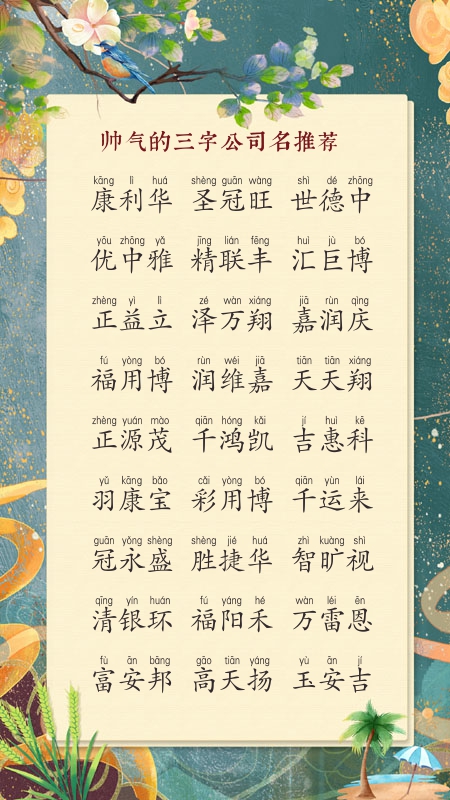 帅气的三字公司名推荐
kāng lì huá shèng guān wàng shì dé zhōng
康利华 圣冠旺 世德中
yōu zhōng yǎ jīng lián fēng huì jù bó
优中雅 精联丰 汇巨博
zhèng yì lì zé wàn xiáng jiā rùn qìng
正益立 泽万翔 嘉润庆
fú yòng bó rùn wéi jiā tiān tiān xiáng
福用博 润维嘉 天天翔
zhèng yuán mào qiān hóng kǎi jí huì kē
正源茂 千鸿凯 吉惠科
yǔ kāng bǎo cǎi yòng bó qiān yùn lái
羽康宝 彩用博 千运来
guān yǒng shèng shèng jié huá zhì kuàng shì
冠永盛 胜捷华 智旷视
qīng yín huán fú yáng hé wàn léi ēn
清银环 福阳禾 万雷恩
fù ān bāng gāo tiān yáng yù ān jí
富安邦 高天扬 玉安吉